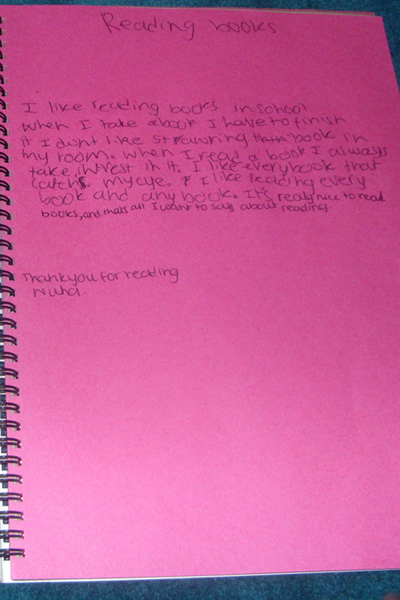 Reading books
I like reading books in school
when I take a book I have to finish
it I don't like book in
my room. when I read a book I always
take intrest in it. I like every book that
catchs my eye. I like reading every
book and any book. It's really nice to read
books, and thats all I want to say about reading.
Thankyou for reading
Nuha.